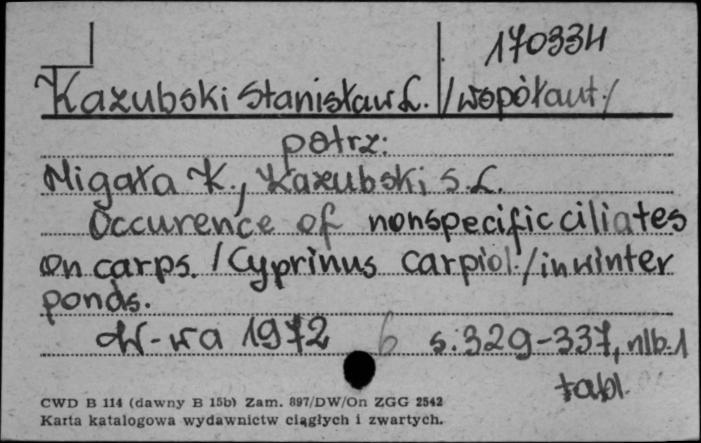 170334
Kazubski Stanisław L. /współaut./
patrz:
Migała K., Kazubski S.L.
Occurence of nonspecific ciliates
on carps /Cyprinus carpiol/ in winter
ponds.
W-wa 1972 6 s. 329-337, nlb. 1
tabl.
CWD B 114 (dawny B 15b) Zam. 897/DW/On ZGG 2542
Karta katalogowa wydawnictw ciągłych i zwartych.